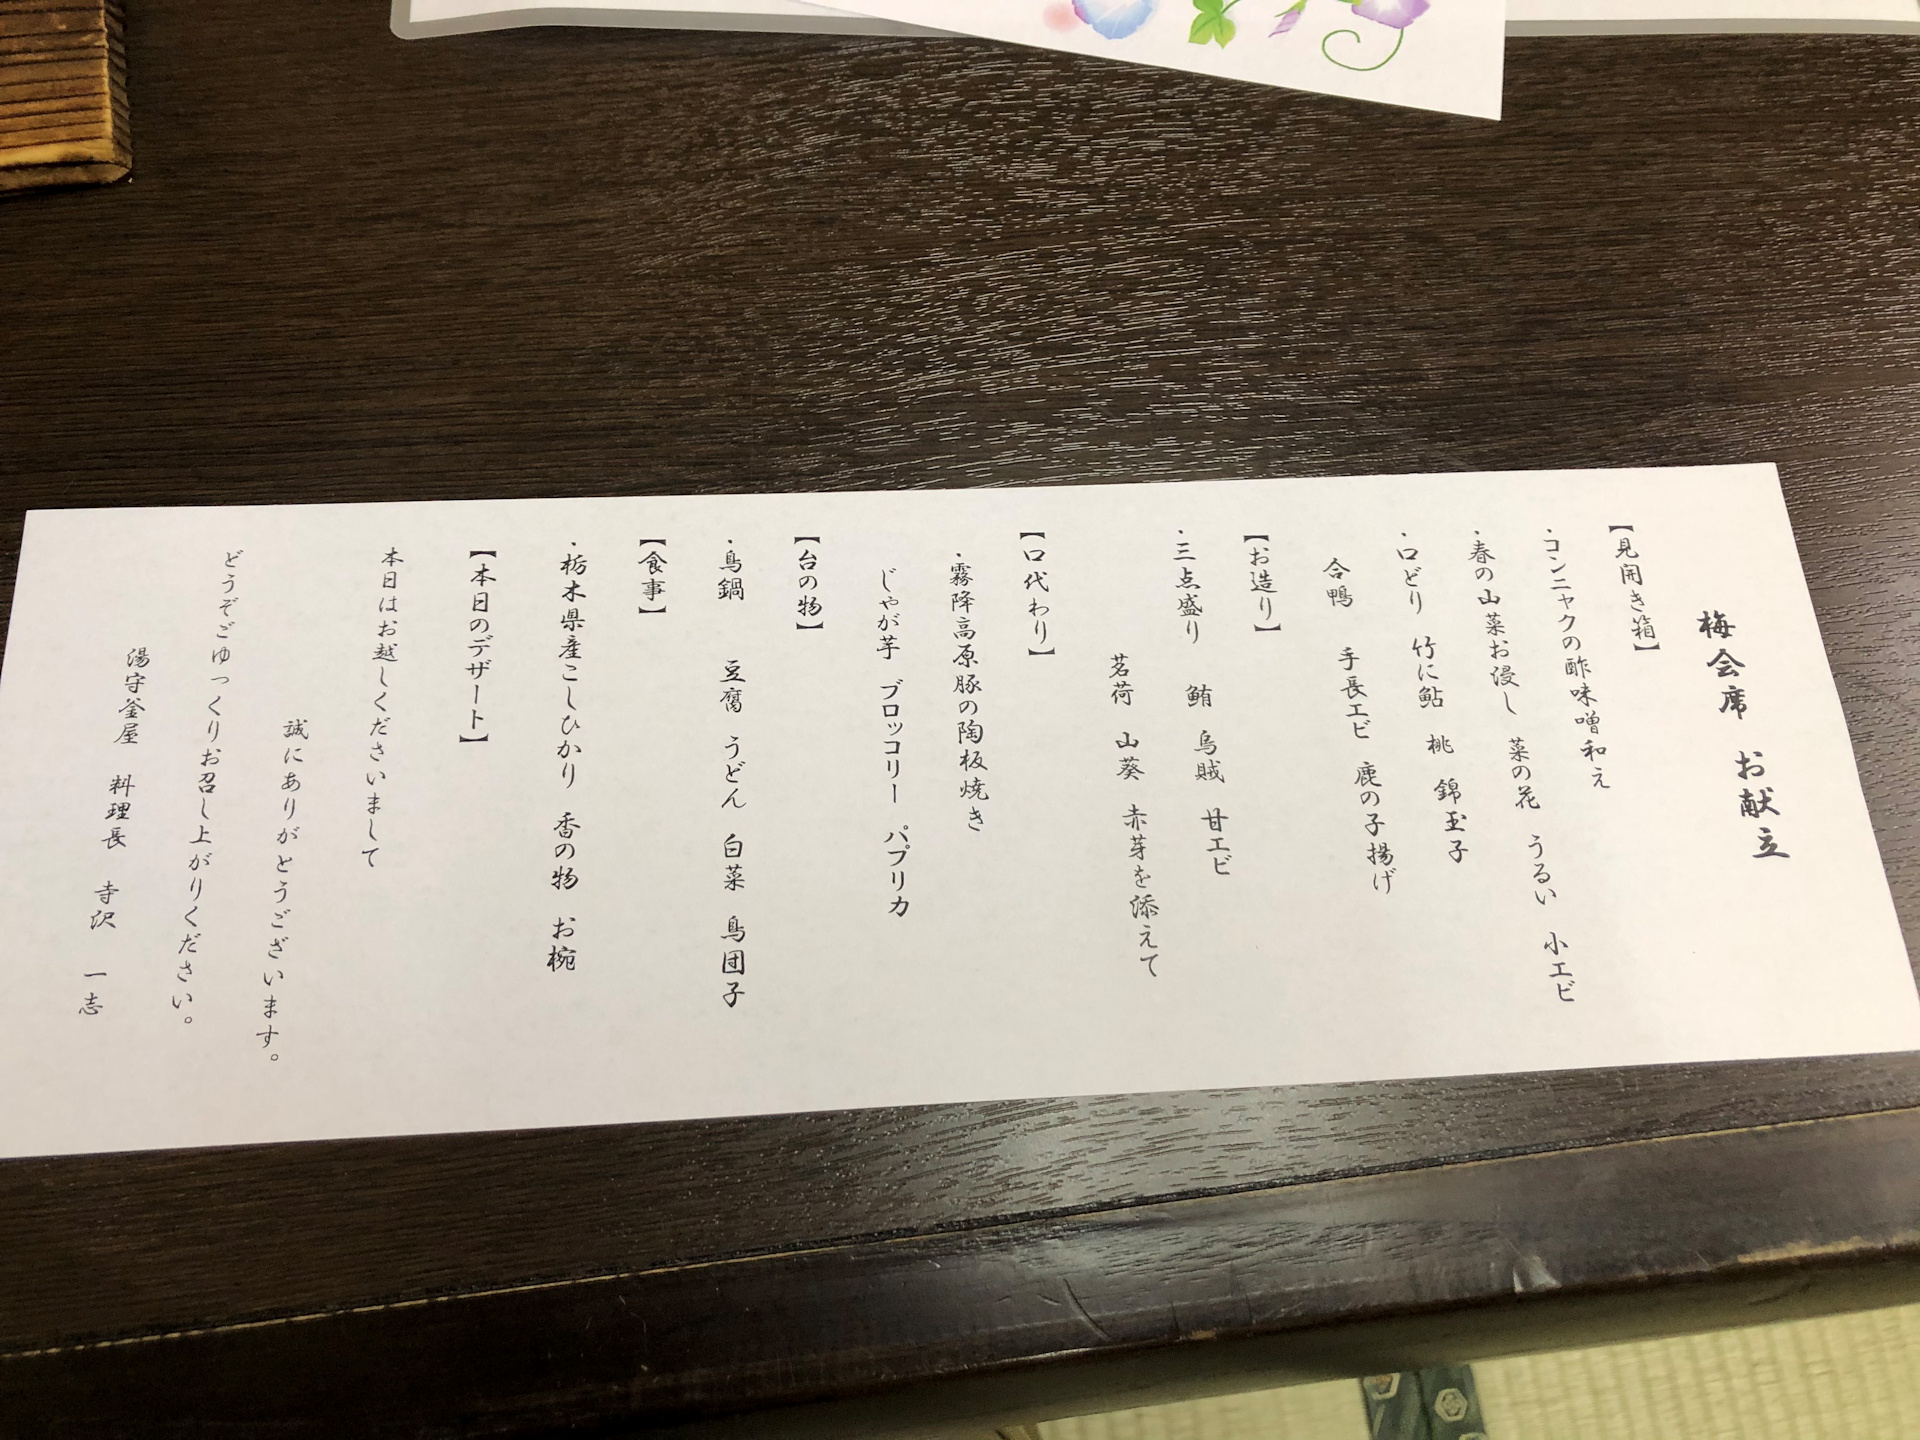 梅会席　お献立
【見開き箱】
・コンニャクの酢味噌和え
・春の山菜お浸し　菜の花　うるい　小エビ
・口どり　竹に鮎　桃　錦玉子
合鴨　手長エビ　鹿の子揚げ
【お造り】
・三点盛り　鮪　烏賊　甘エビ
茗荷　山葵　赤芽を添えて
【口代わり】
・霧降高原豚の陶板焼き
じゃが芋　ブロッコリー　パプリカ
【台の物】
・鳥鍋　豆腐　うどん　白菜　鳥団子
【食事】
・栃木県産こしひかり　香の物　お椀
【本日のデザート】
本日はお越しくださいまして
誠にありがとうございます。
どうぞごゆっくりお召し上がりください。
湯守釜屋　料理長　寺沢　一志